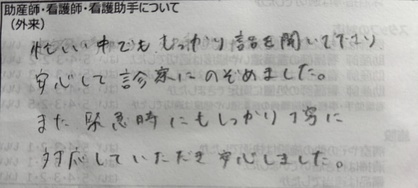 助産師・看護師・看護助手について
(外来)
忙しい中でもしっかり話を聞いて下さり
安心して診察にのぞめました。
また緊急時にもしっかり丁寧に
対応していただき安心しました。